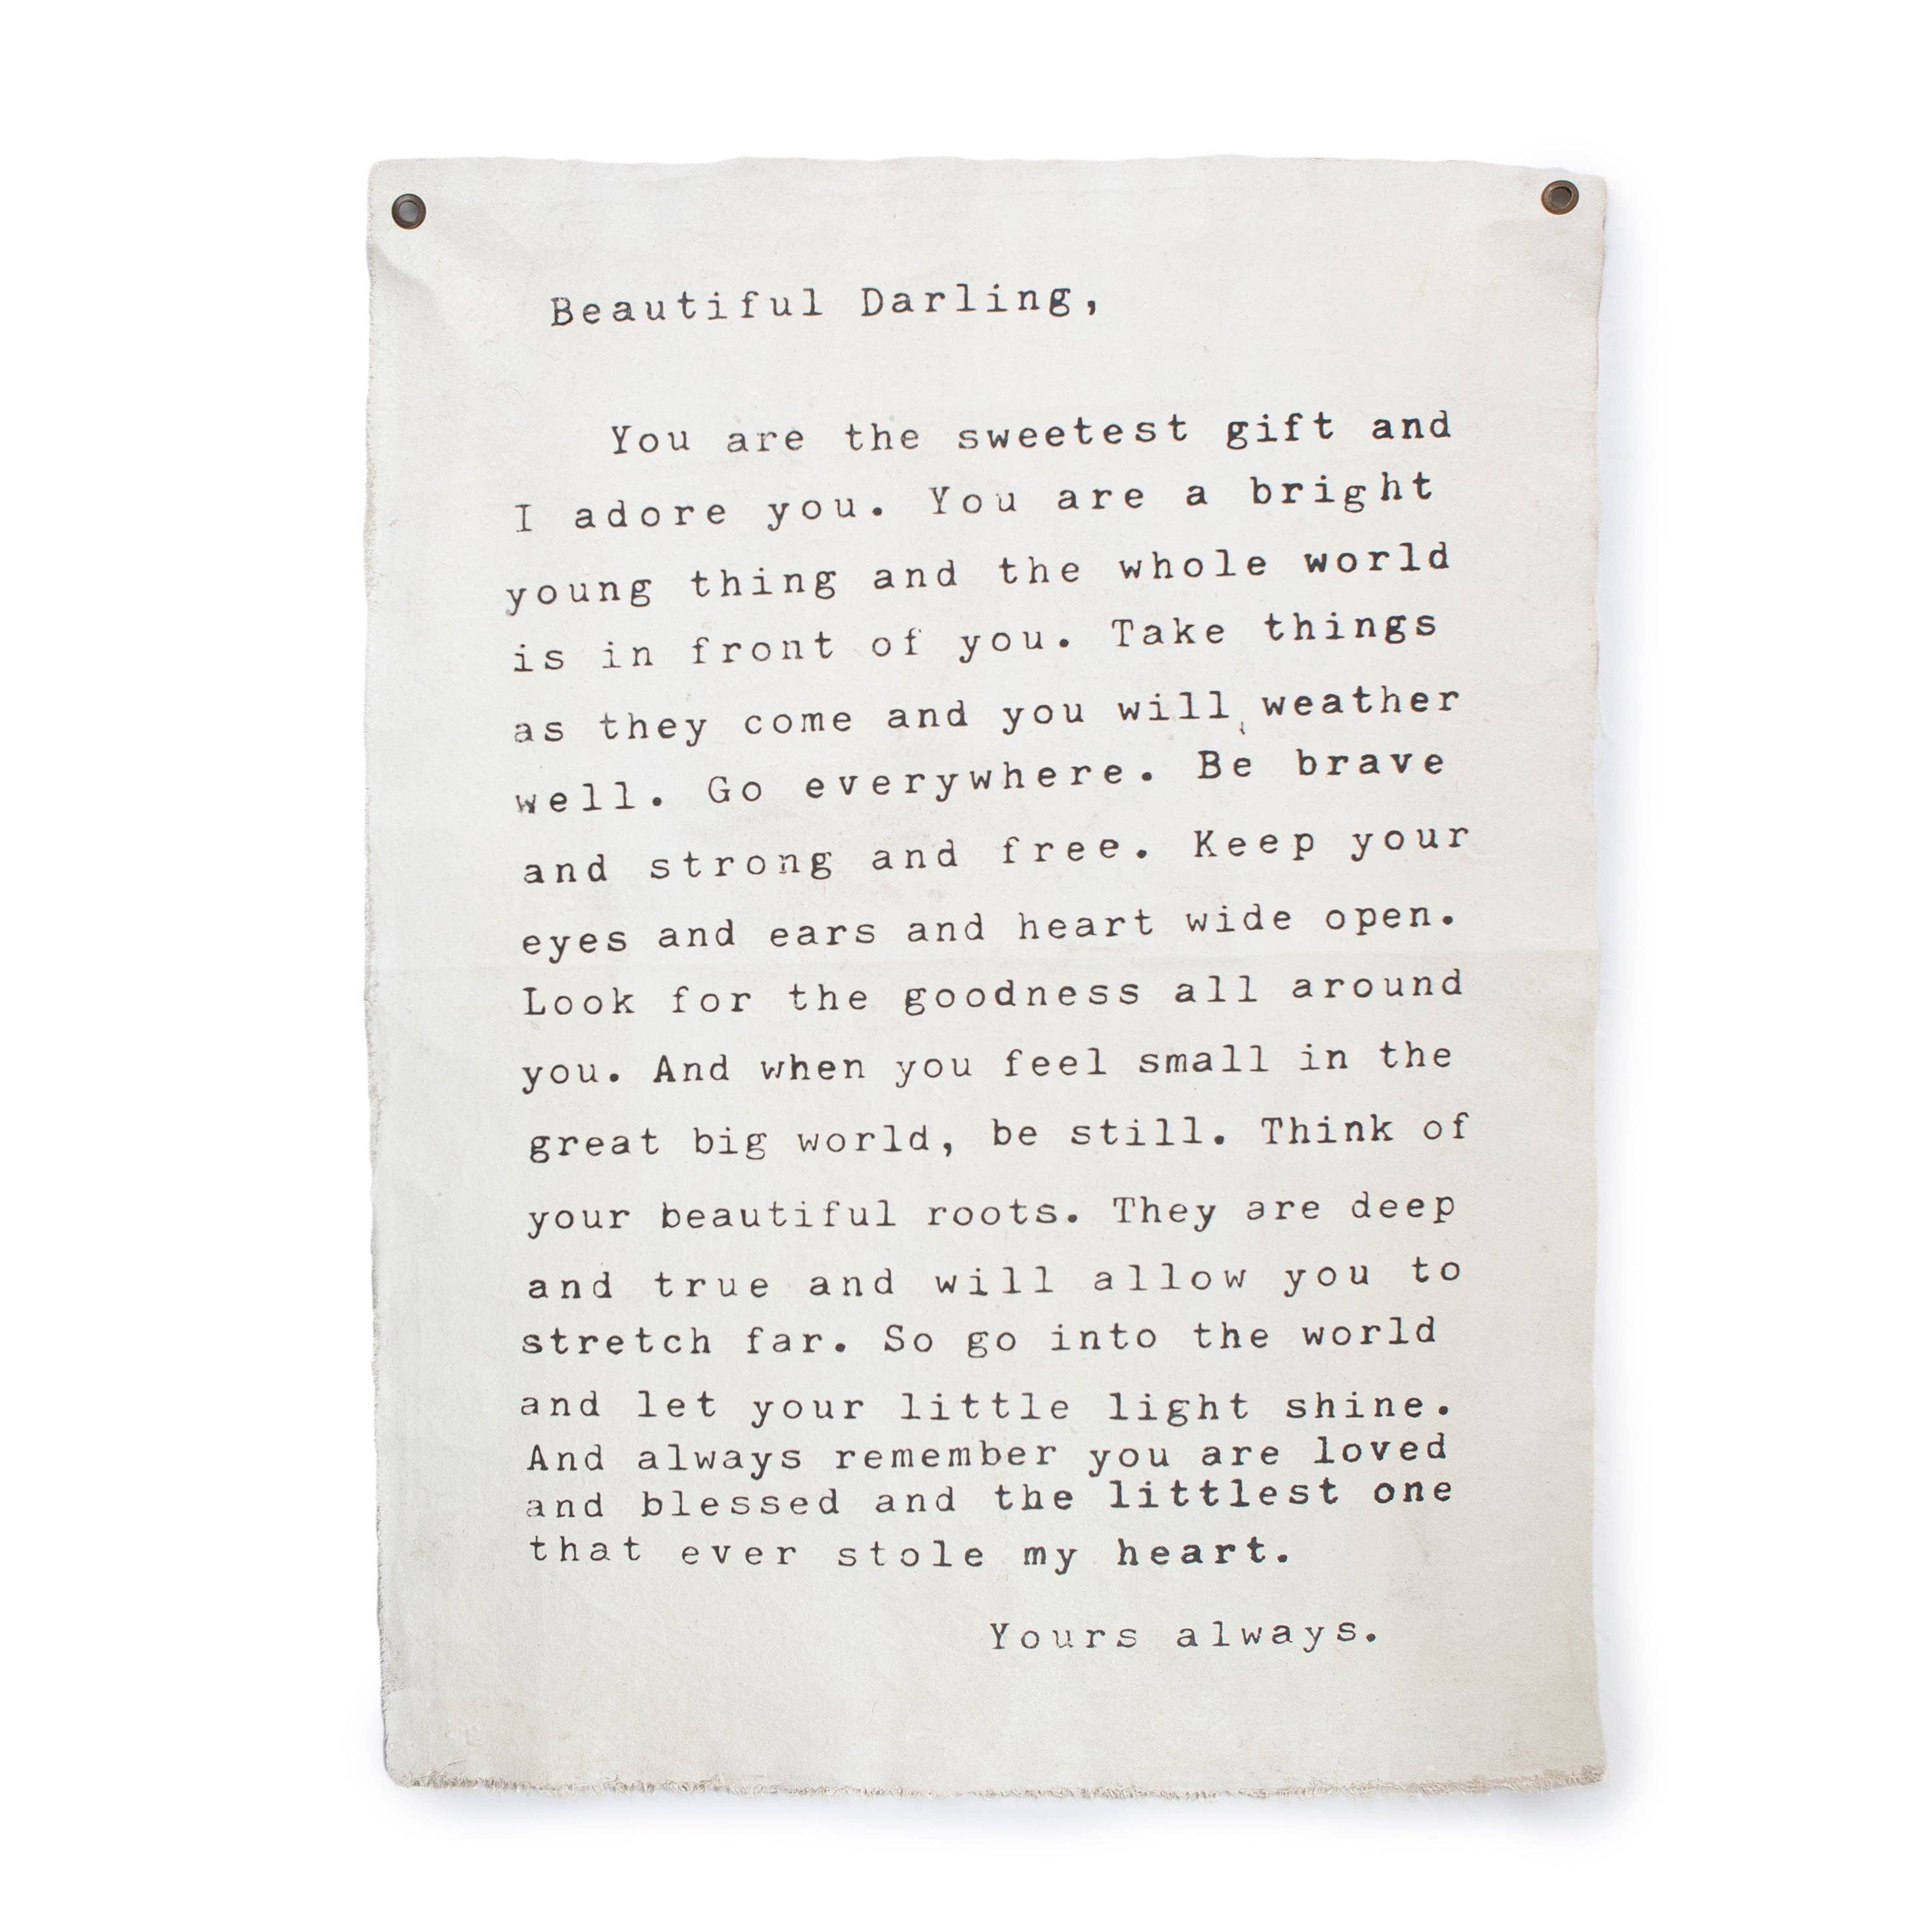 Beautiful Darling,
You are the sweetest gift and
I adore you. You are a bright
young thing and the whole world
is in front of you. Take things
as they come and you will weather
well. Go everywhere. Be brave
and strong and free. Keep your
eyes and ears and heart wide open.
Look for the goodness all around
you. And when you feel small in the
great big world, be still. Think of
your beautiful roots. They are deep
and true and will allow you to
stretch far. So go into the world
and let your little light shine.
And always remember you are loved
and blessed and the littlest one
that ever stole my heart.
Yours always.